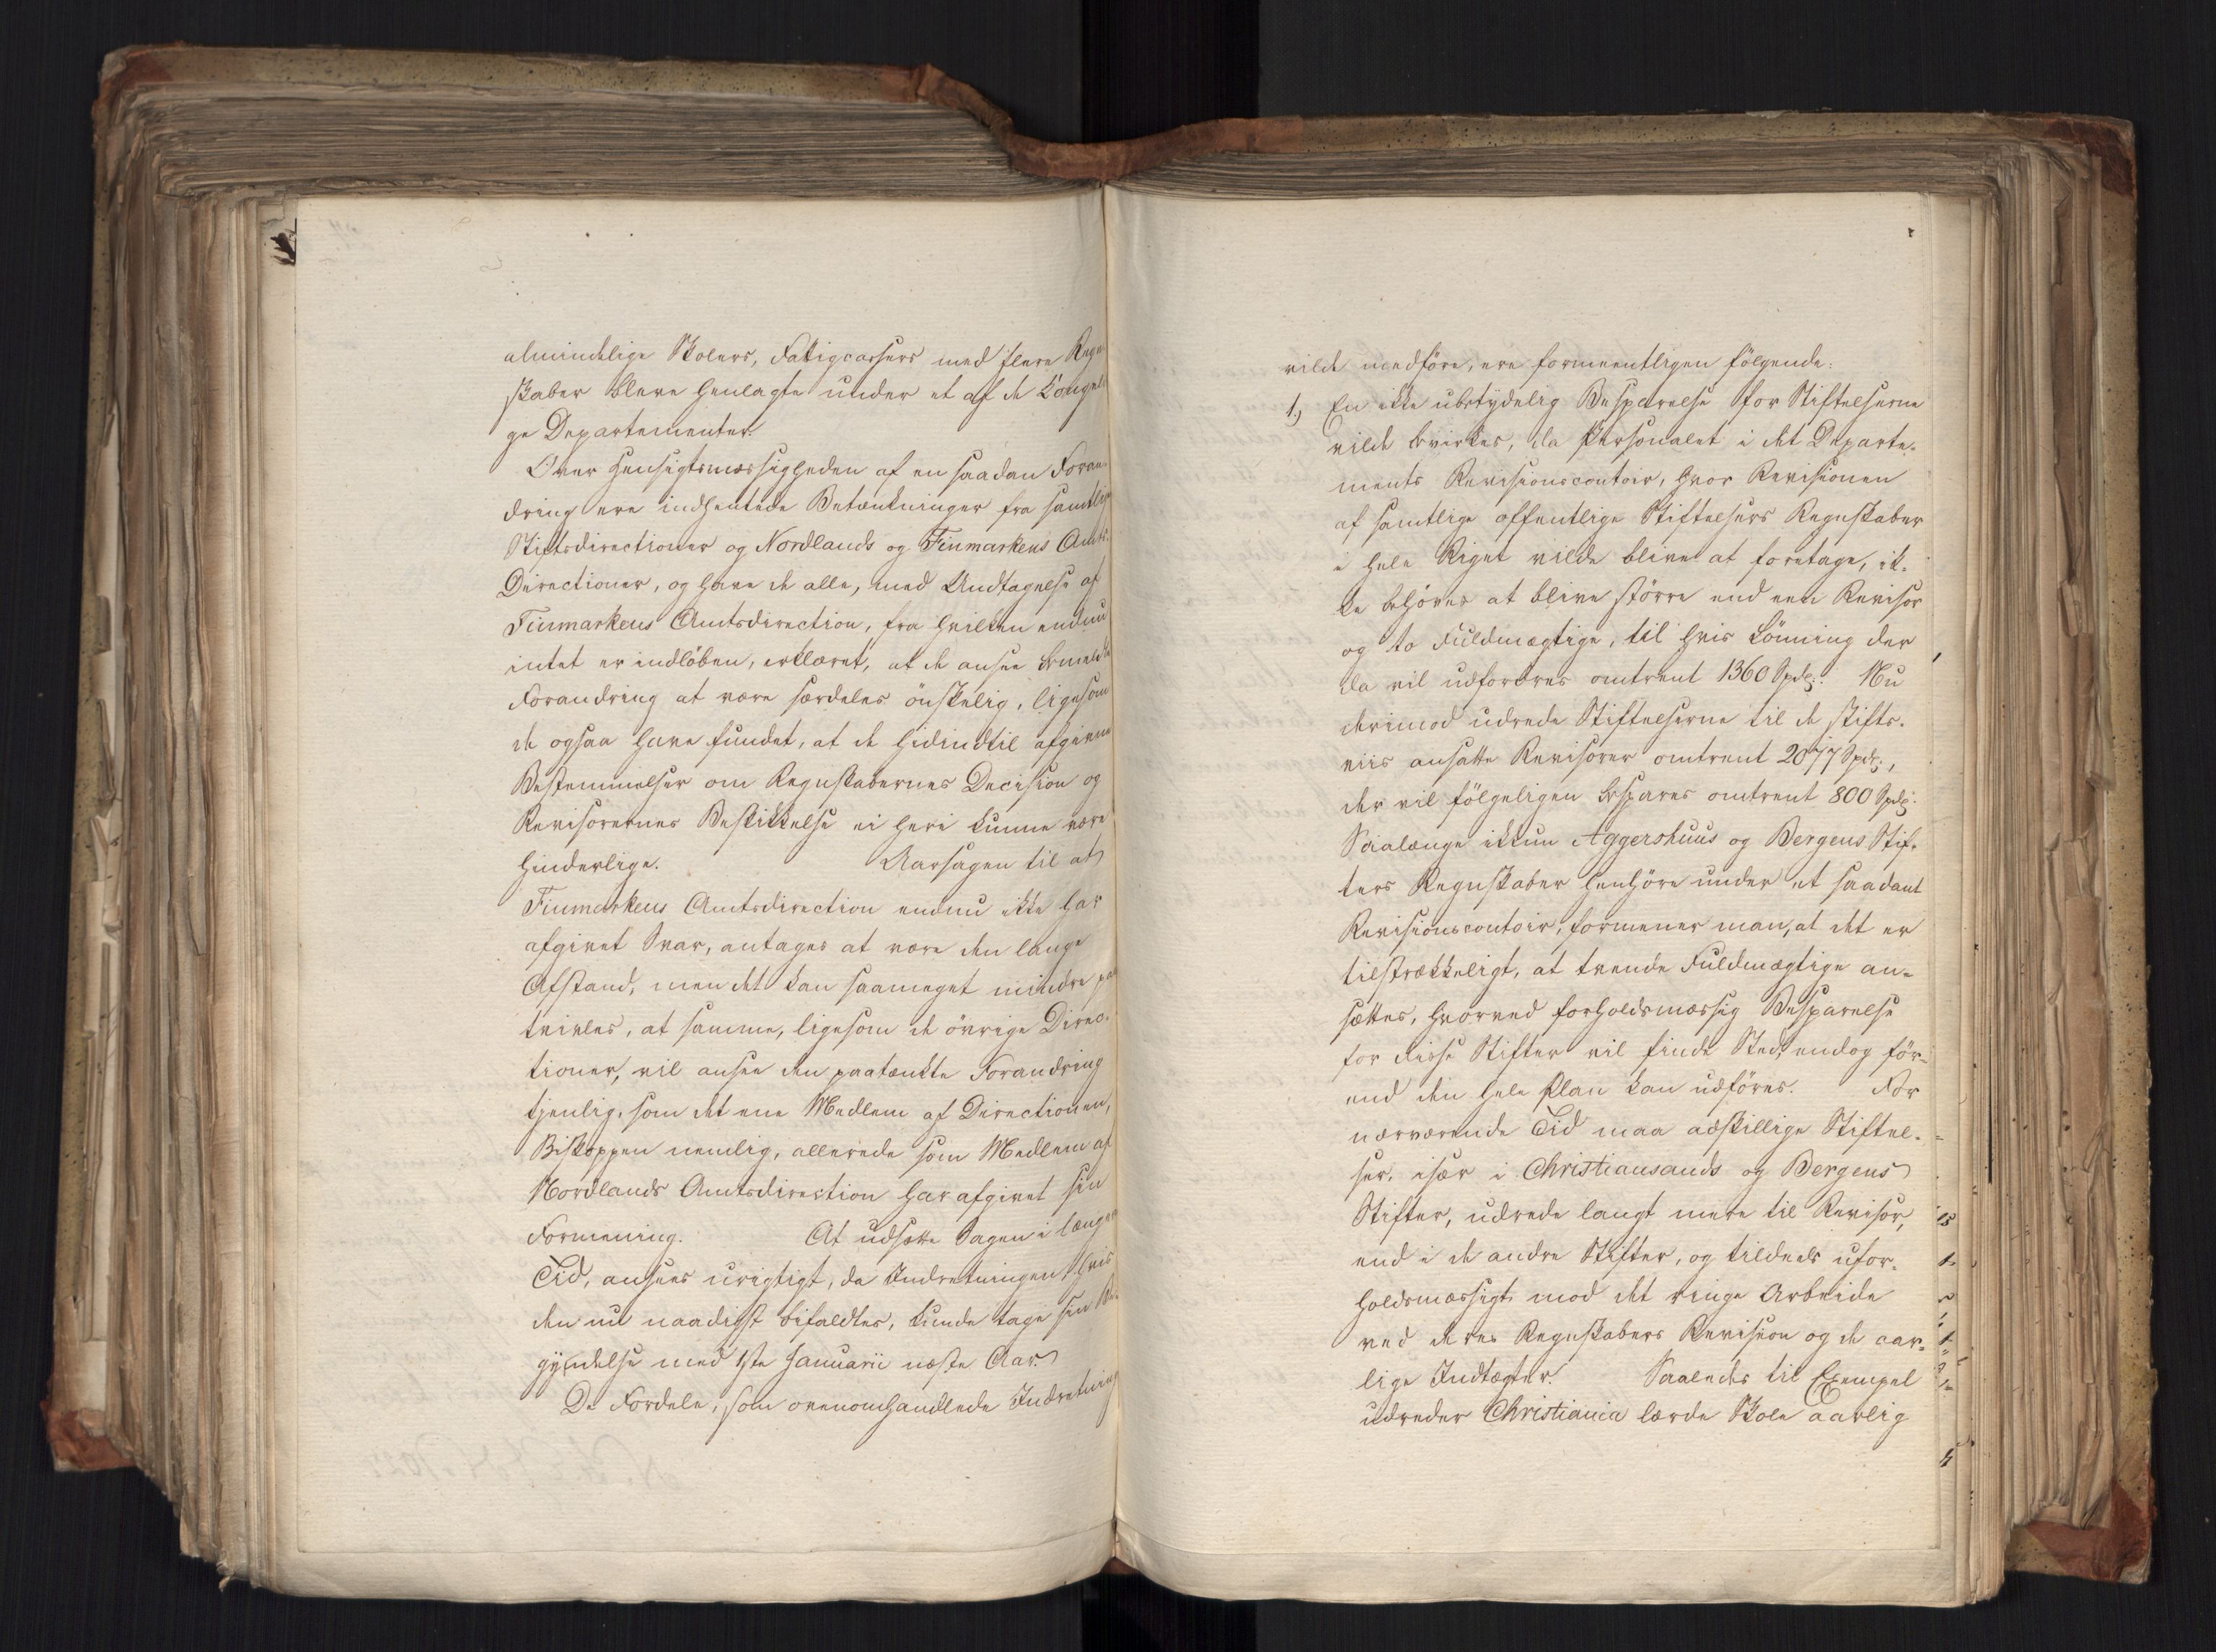 almindelige Skolers, Fattigcassers med flere Regn
skaber bleve henlagte under et af de Kongeli
ge Departementer.
Over Hensigtsmæssigheden af en saadan Foran-
dring ere indhentede Betænkninger fra samtlige
Stiftsdirectioner og Nordlands og Finmarkens Amts-
Directioner, og have de alle, med Undtagelse af
Finmarkens Amtsdirection, fra hvilken endnu
intet er indløben, erklæret, at de ansee bemeldte
Forandring at være særdeles ønskelig, ligesom
de ogsaa have fundet, at de hidindtil afgivne
Bestemmelser om Regnskabernes Decision og
Revisorernes Beskikkelse ei heri kunne være
hinderlige. Aarsagen til at
Finmarkens Amtsdirection endnu ikke har
afgivet Svar, antages at være den lange
Afstand, men det kan saameget mindre paa
tvivles, at samme, ligesom de øvrige Direc-
tioner, vil ansee den paatænkte Forandring
tjenlig, som det ene Medlem af Directionen,
Biskoppen nemlig, allerede som Medlem af
Nordlands Amtsdirection har afgivet sin
Formening. At udsætte Sagen i længere
Tid, ansees urigtigt, da Indretningen, hvis
den nu naadigst bifaldtes, kunde tage sin Be-
gyndelse med 1ste Januarii næste Aar.
De Fordele, som ovenomhandlede Indretning
vilde medføre, ere formeentligen følgende:
1.) En ikke ubetydelig Besparelse for Stiftelserne
vilde bevirkes, da Personalet i det Departe-
ments Revisionscontoir, hvor Revisionen
af samtlige offentlige Stiftelsers Regnskaber
i hele Riget vilde blive at foretage, ik-
ke behøver at blive større end een Revisor
og to Fuldmægtige, til hvis Lønning der
da vil udfordres omtrent 1360 Spdlr: Nu
derimod udrede Stiftelserne til de stifts-
viis ansatte Revisorer omtrent 2077 Spdlr:,
der vil følgeligen bespares omtrent 800 Spdlr:
Saalænge ikkun Aggershuus og Bergens Stif-
ters Regnskaber henhøre under et saadant
Revisionscontoir, formener man, at det er
tilstrækkeligt, at tvende Fuldmægtige an-
sættes, hvorved forholdsmæssig Besparelse
for disse Stifter vil finde Sted, endog før-
end den hele Plan kan udføres. For
nærværende Tid maa adskillige Stiftel-
ser, især i Christiansands og Bergens
Stifter, udrede langt mere til Revisor,
end i de andre Stifter, og tildeels ufor-
holdsmæssigt mod det ringe Arbeide
ved deres Regnskabers Revision og de aar-
lige Indtægter. Saaledes til Exempel
udreder Christiania lærde Skole aarlig